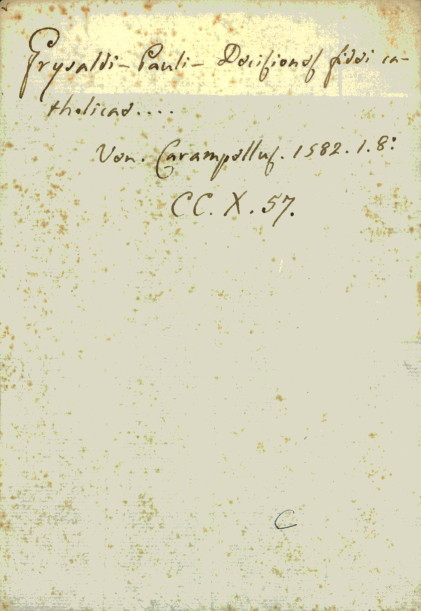 Grysaldi - Pauli - Decisiones fidei ca-
tholicae....
Ven. Carampellus. 1582. 1. 8:
CC. X. 57.
C